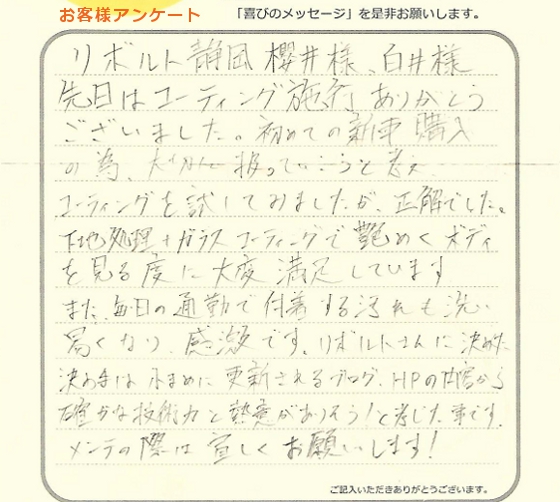 お客様アンケート 「喜びのメッセージ」を是非お願いします。
リボルト静岡 櫻井様、白井様
先日はコーティング施行 ありがとう
ございました。初めての新車購入
の為、大切に扱っていこうと考え
コーティングを試してみましたが、正解でした。
下地処理+ガラスコーティングで艶めくボディ
を見る度に大変満足しています
また、毎日の通勤で付着する汚れも洗い
易くなり、感激です。リボルトさんに決めた
決め手は小まめに更新されるブログ、HPの内容から
確かな技術力と熱意がありそう!と感じた事です。
メンテの際は宜しくお願いします!
ご記入いただきありがとうございます。